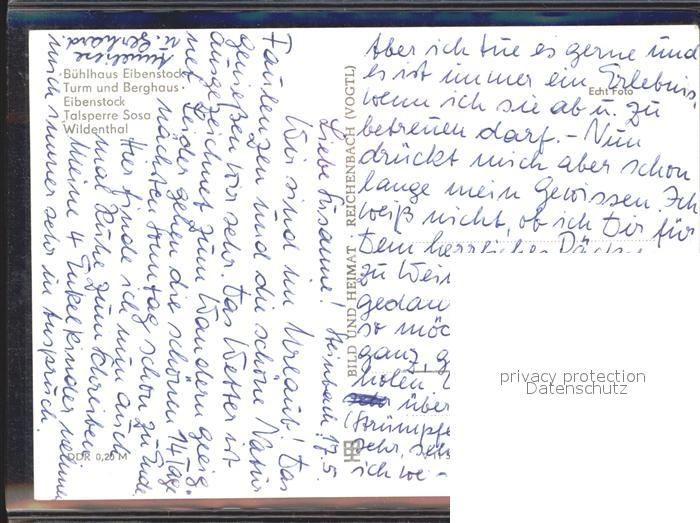 Bühlhaus Eibenstock
Turm und Berghaus
Eibenstock
Talsperre Sosa
Wildenthal
DDR 0,20 M
BILD UND HEIMAT REICHENBACH (VOGTL)
Echt Foto
Steinbach, 17.5.
Liebe Susanne!
Wir sind im Urlaub! Das
Faulenzen und die schöne Natur
genießen wir sehr. Das Wetter ist
ausgezeichnet zum Wandern geeig-
net. Leider gehen die schönen 14 Tage
nächsten Sonntag schon zu Ende.
Hier finde ich nun auch
mal Ruhe zum Schreiben.
Meine 4 Enkelkinder nehmen
mich immer sehr in Anspruch.
Aber ich tue es gerne und
es ist immer ein Erlebnis
wenn ich sie ab u. zu
betreuen darf. – Nun
drückt mich aber schon
lange mein Gewissen. Ich
weiß nicht, ob ich Dir für
Dein
zu Wei
gedan
so möc
ganz g
holen.
über
Strümpfe
sehr, seh
ich we
u. Gerhard.
privacy protection
Datenschutz